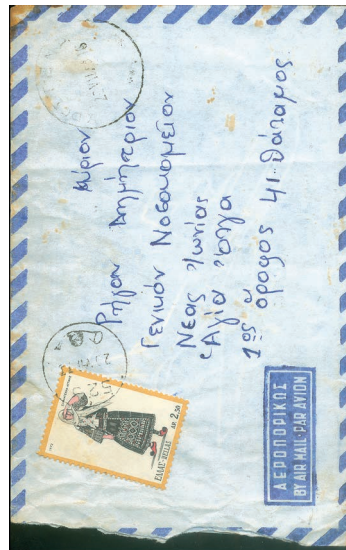 Κύριον
Ρήγαν Δημήτριον
Γενικόν Νοσοκομείον
Νέας Ιωνίας
"Αγία Όλγα
1ος όροφος 41 Θάταμος
ΑΕΡΟΠΟΡΙΚΩΣ
BY AIR MAIL-PAR AVION
ΕΛΛΑΣ-HELLAS
ΔΡ. 2,50